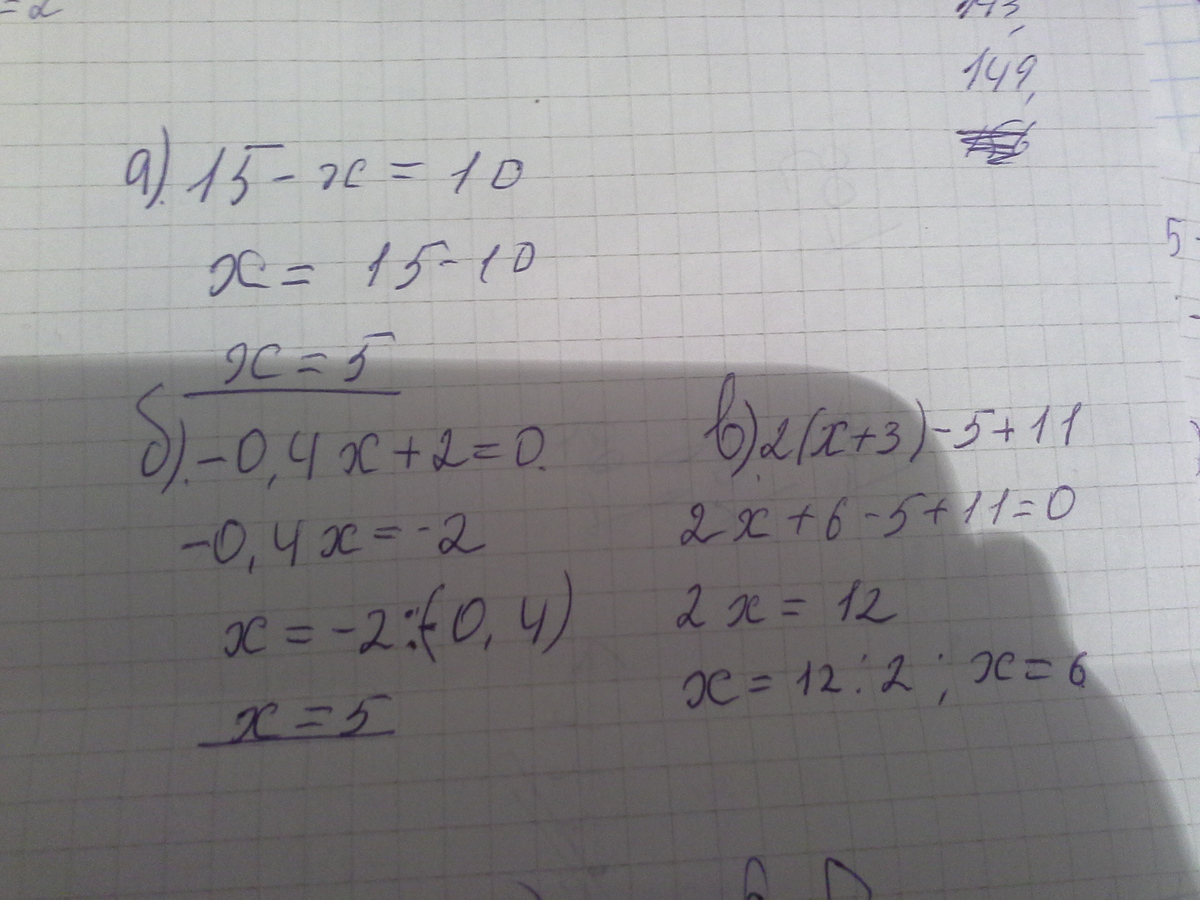 = 2
149,
а). 15 - x = 10
x = 15 - 10
x = 5
б). -0,4x + 2 = 0.
-0,4x = -2
x = -2:(-0,4)
x = 5
в) 2(x+3) - 5 + 11
2x + 6 - 5 + 11 = 0
2x = 12
x = 12 : 2 ; x = 6
5 -